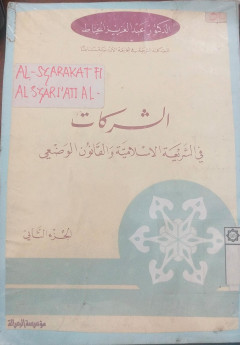 الدكتور عبد العزيز الخياط
AL-SYARAKAT FI
AL SYARI'ATI AL-
الشركات
في الشريعة الإسلامية والقانون الوضعي
الجزء الثاني
مؤسسة الرسالة